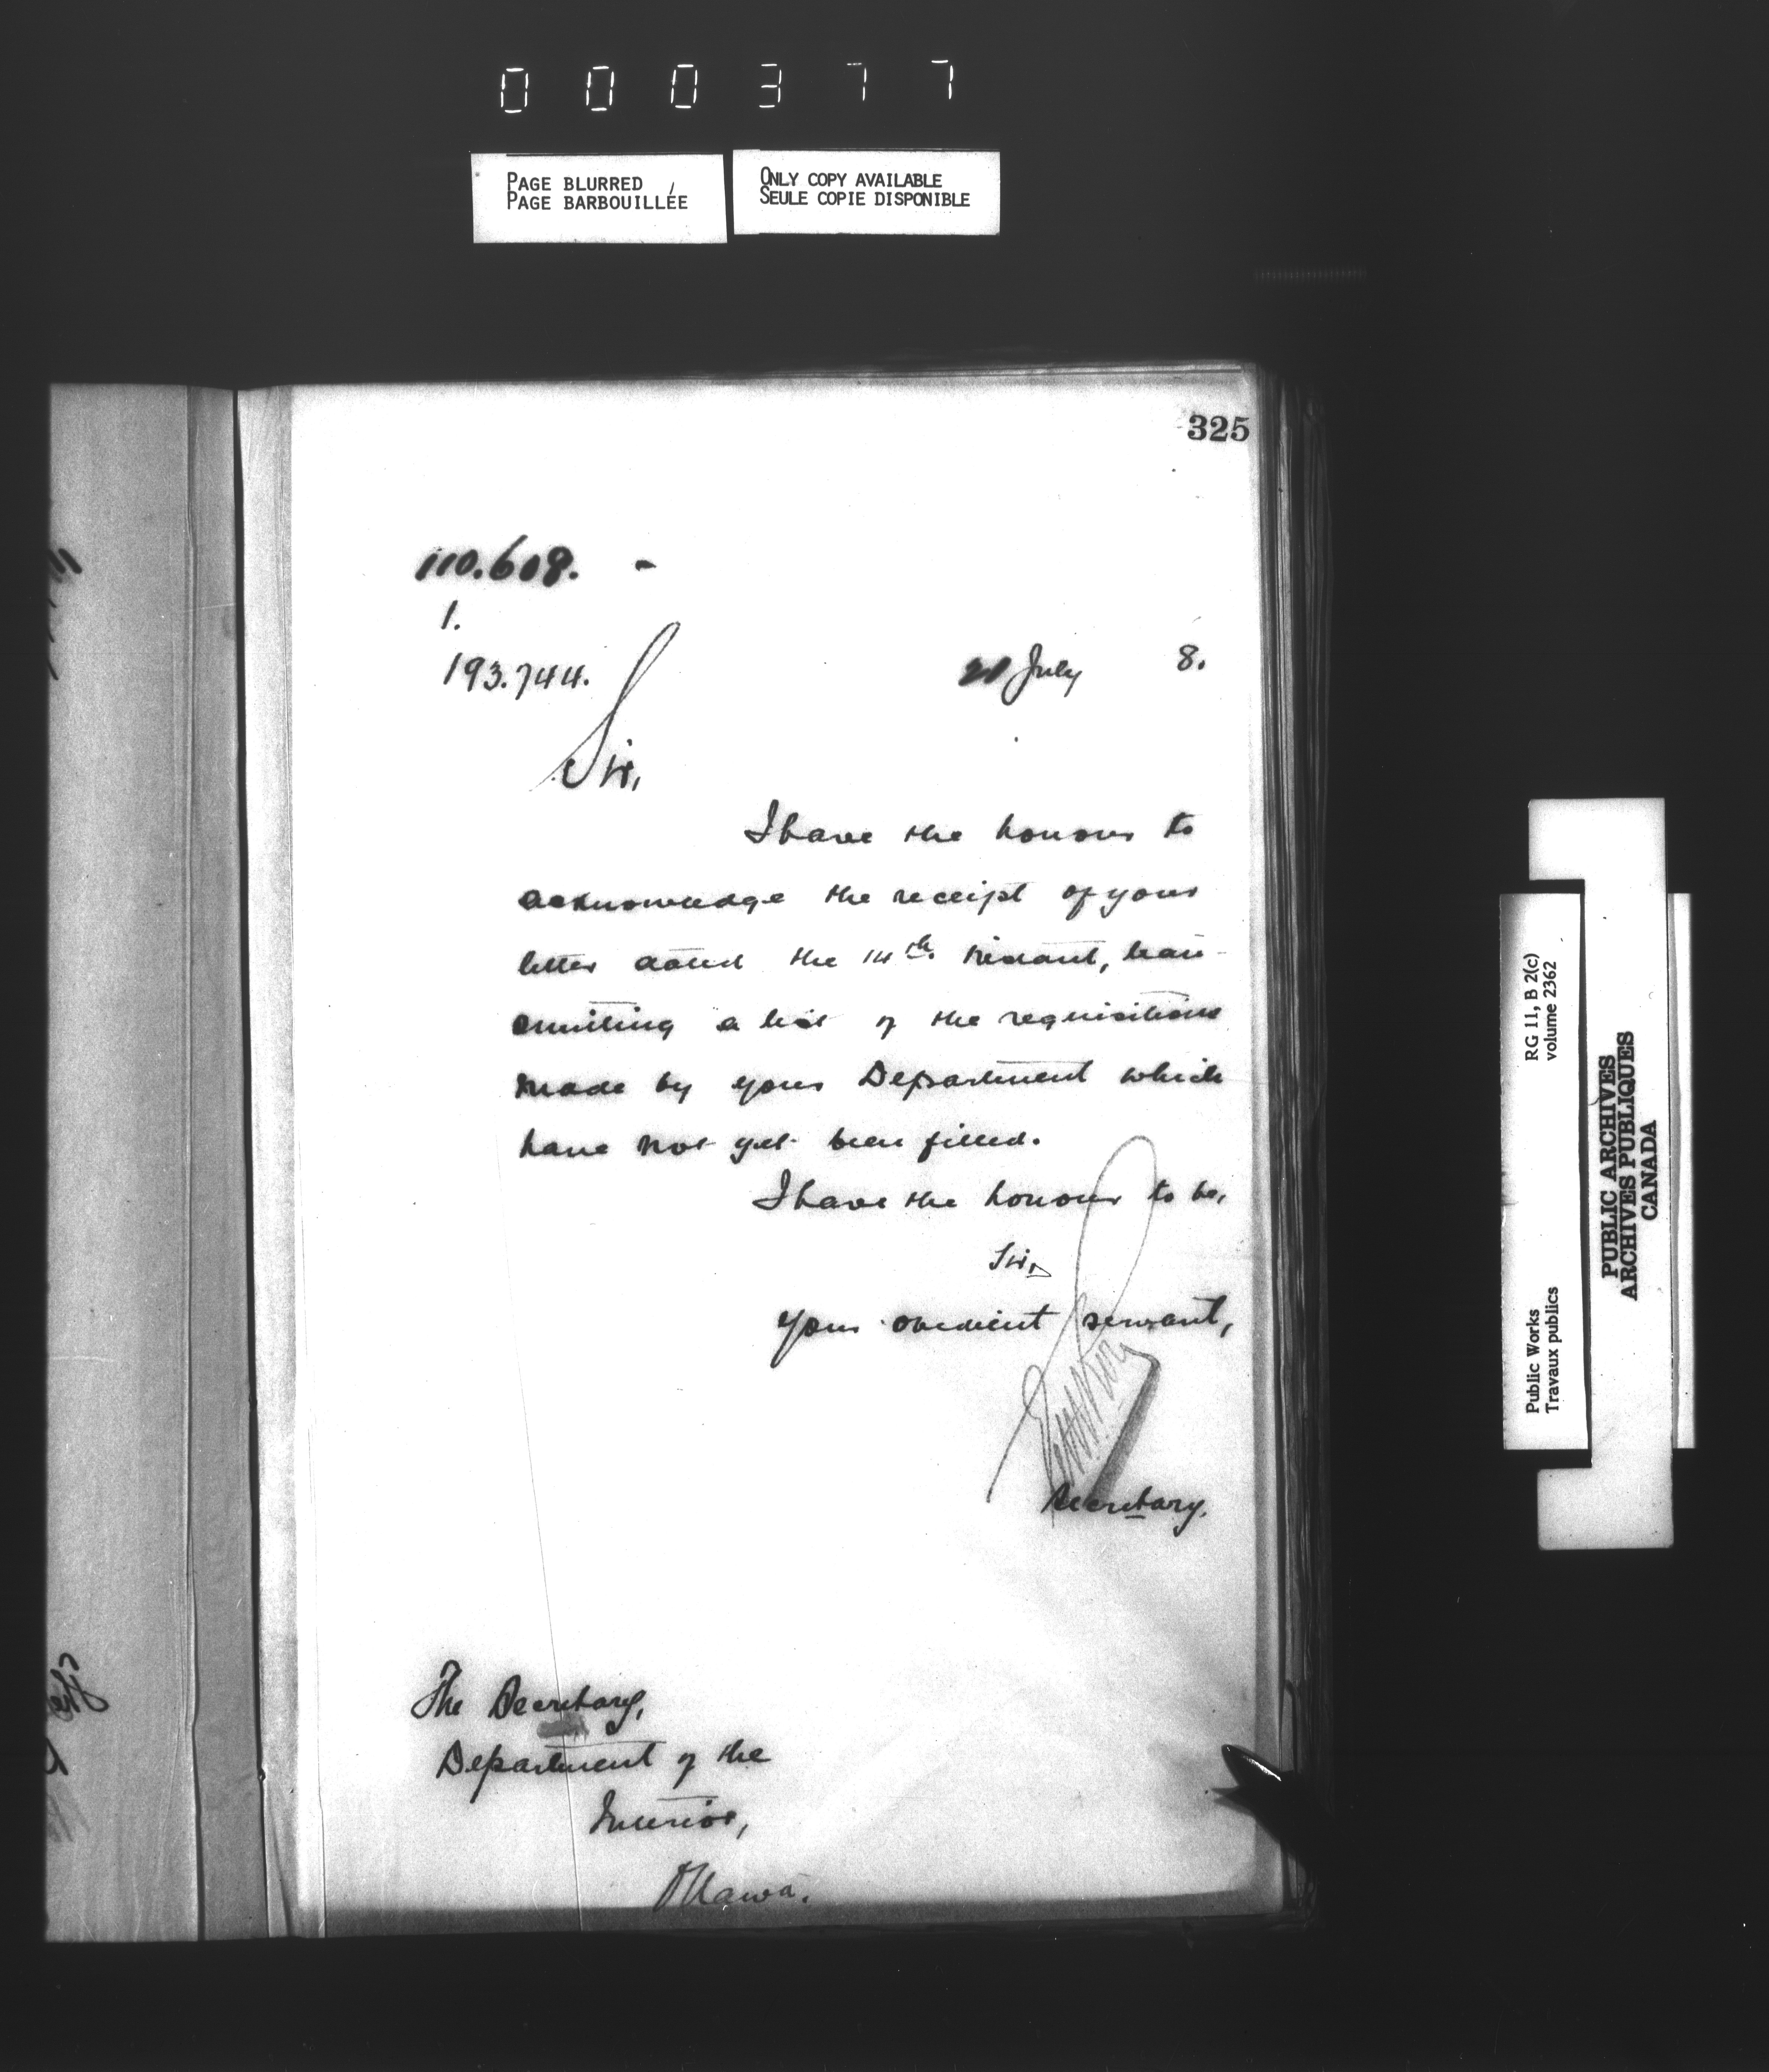 000377
PAGE BLURRED
PAGE BARBOUILLÉE
ONLY COPY AVAILABLE
SEULE COPIE DISPONIBLE
325
110.608. -
1.
193.744.
21 July 8.
Sir,
I have the honour to
acknowledge the receipt of your
letter dated the 14th instant, tran-
smitting a list of the requisitions
made by your Department which
have not yet been filled.
I have the honour to be,
Sir,
Your obedient servant,
Secretary.
The Secretary,
Department of the
Interior,
Ottawa.
RG 11, B 2(c)
volume 2362
Public Works
Travaux publics
PUBLIC ARCHIVES
ARCHIVES PUBLIQUES
CANADA